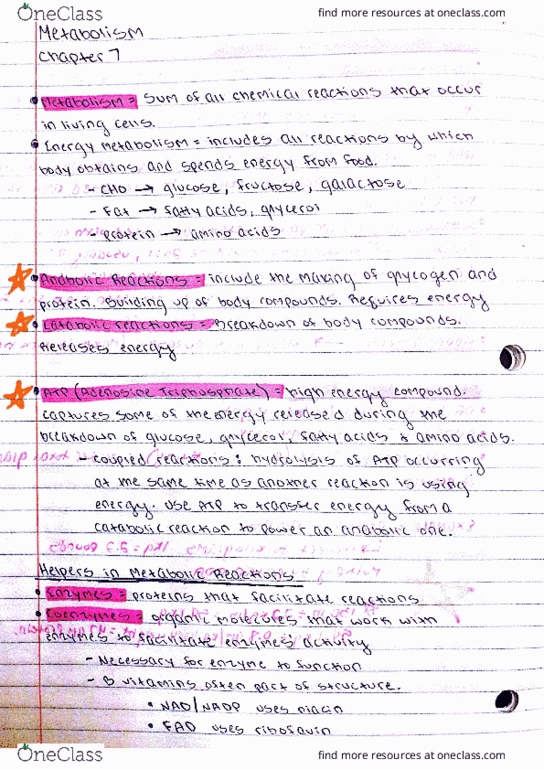 OneClass
find more resources at oneclass.com
Metabolism
Chapter 7
Metabolism = sum of all chemical reactions that occur
in living cells.
Energy metabolism = includes all reactions by which
body obtains and spends energy from food.
- CHO → glucose, fructose, galactose
- Fat → fatty acids, glycerol
- protein → amino acids
Anabolic Reactions = include the making of glycogen and
protein. Building up of body compounds. Requires energy
Catabolic reactions = Breakdown of body compounds.
Releases energy
ATP (Adenosine Triphosphate) = high energy compound.
captures some of the energy released during the
breakdown of glucose, glycerol, fatty acids & amino acids.
- coupled reactions: hydrolysis of ATP occurring
at the same time as another reaction is using
energy. Use ATP to transfer energy from a
catabolic reaction to power an anabolic one.
Helpers in Metabolic Reactions
Enzymes = proteins that facilitate reactions
Coenzymes = organic molecules that work with
enzymes to facilitate enzymes' activity
- Necessary for enzyme to function
- B vitamins often part of structure.
• NAD/NADP uses niacin
• FAD uses riboflavin
OneClass
find more resources at oneclass.com